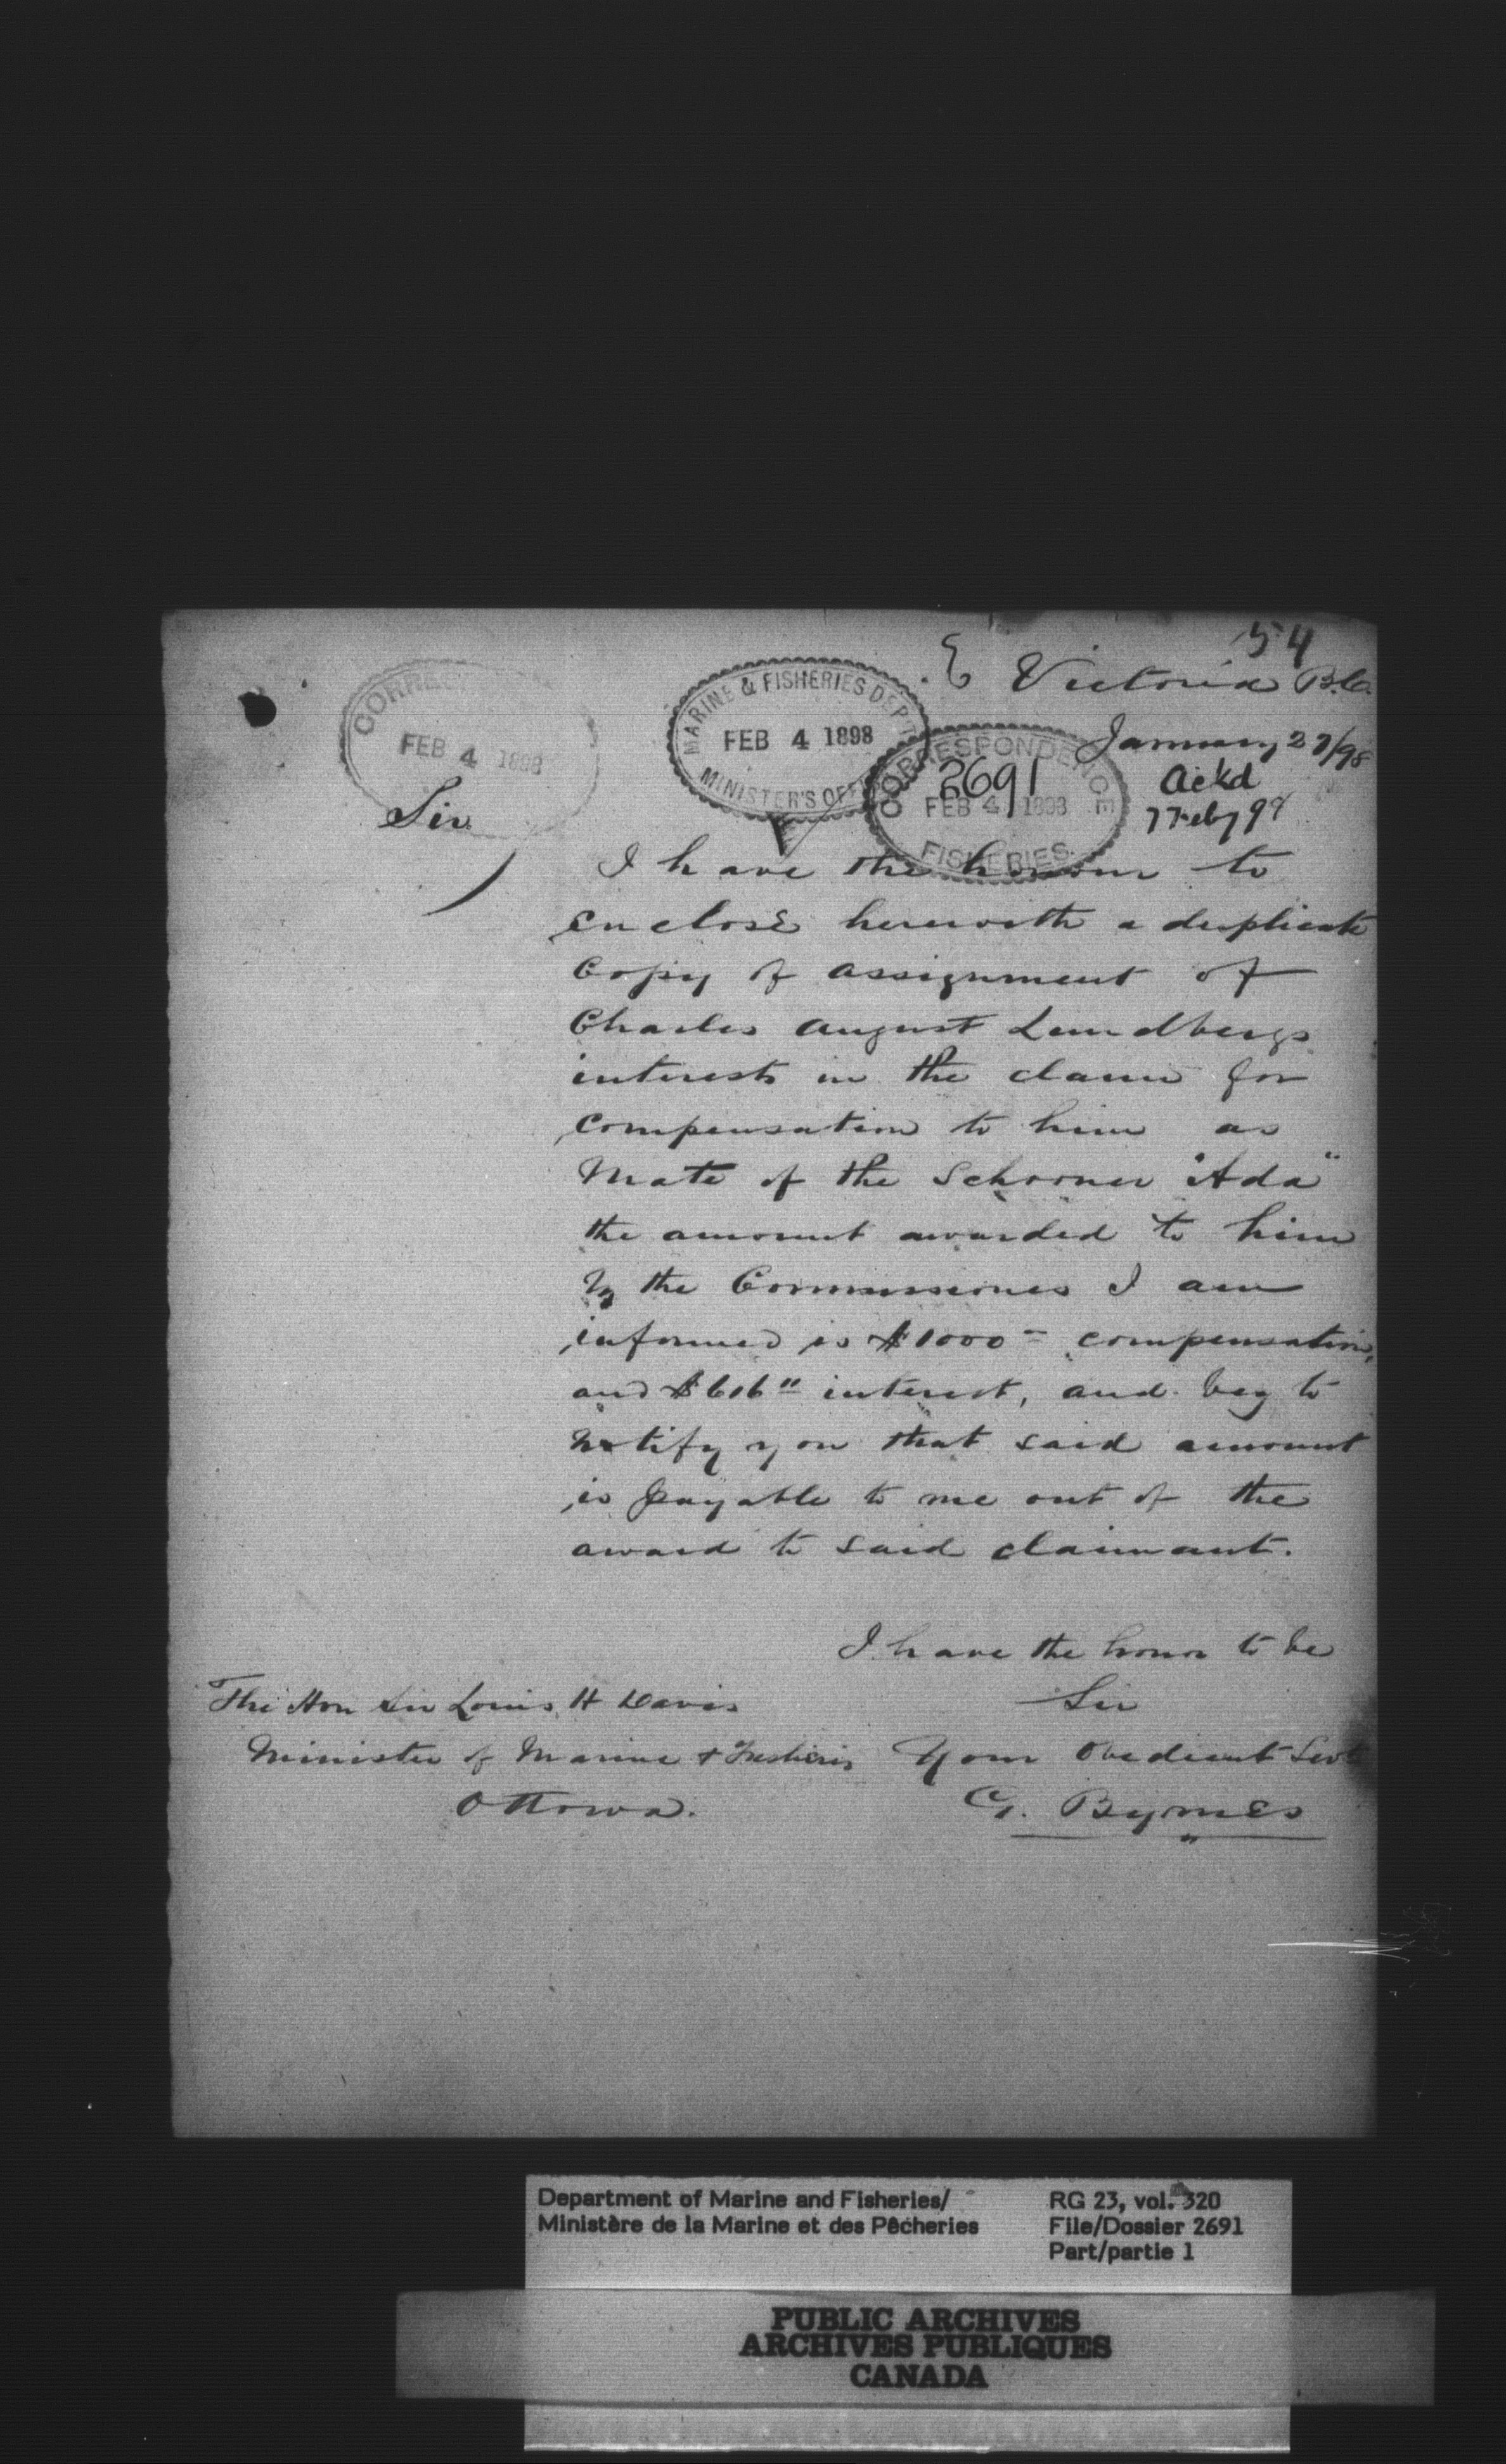 54
E Victoria B.C.
January 27/98
CORRES
FEB 4 1898
MARINE & FISHERIES DEPT
FEB 4 1898
MINISTER'S OFF
CORRESPONDENCE
2691
FEB 4 1898
FISHERIES.
Ackd
7 Feby 98
Sir
I have the honour to
enclose herewith a duplicate
Copy of assignment of
Charles August Lundbergs
interests in the claim for
compensation to him as
Mate of the Schooner "Ada"
the amount awarded to him
by the Commissioners I am
informed is $1000 = compensation,
and $616 " interest, and beg to
notify you that said amount
is payable to me out of the
award to said claimant.
I have the honor to be
Sir
Your Obedient Servt
G. Byrnes
The Hon Sir Louis H Davis
Minister of Marine & Fisheries
Ottowa.
Department of Marine and Fisheries/
Ministère de la Marine et des Pêcheries
RG 23, vol. 320
File/Dossier 2691
Part/partie 1
PUBLIC ARCHIVES
ARCHIVES PUBLIQUES
CANADA